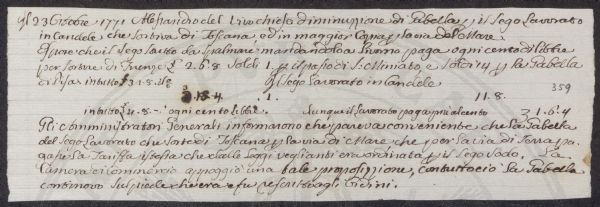 23 Ottobre 1771 Alessandro del Livo chiese diminuzione di Gabella p il Sego Lavorato
in Candele che sortiva di Toscana, ed in maggior Copia p la via del Mare.
che il Sego Sodo da Spalmare mandandolo a Livorno, paga ogni cento di libbre
per sortire di Firenze £ 2.6.8 Soldi 1. p il passo di S. Miniato, e Soldi 14 p la Gabella
di Pisa in tutto £ 3.1.8 Il Sego Lavorato in Candele
3.18.4 .1. 11.8. 359
in tutto £ 4.8.-. ogni cento libbre. Dunque il lavorato paga più al cento 1.6.4
Gli Amministratori Generali informarono che pareva conveniente che la Gabella
del Sego Lavorato che sorte di Toscana p la via di Mare che per la via di Terra pa-
gasse la Tariffa istessa che dalle Leggi veglianti era ordinata p il Sego Sodo. La
Camera di Commercio appoggiò una tale proposizione, contuttociò la Gabella
continovò sul piede che era e fu rescritto agli